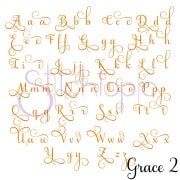 A a B b C c D d
E e F f G g H h
I i J j K k L l
M m N n O o P p
Q q R r S s T t
U u V v W w X x
Y y Z z
Grace 2